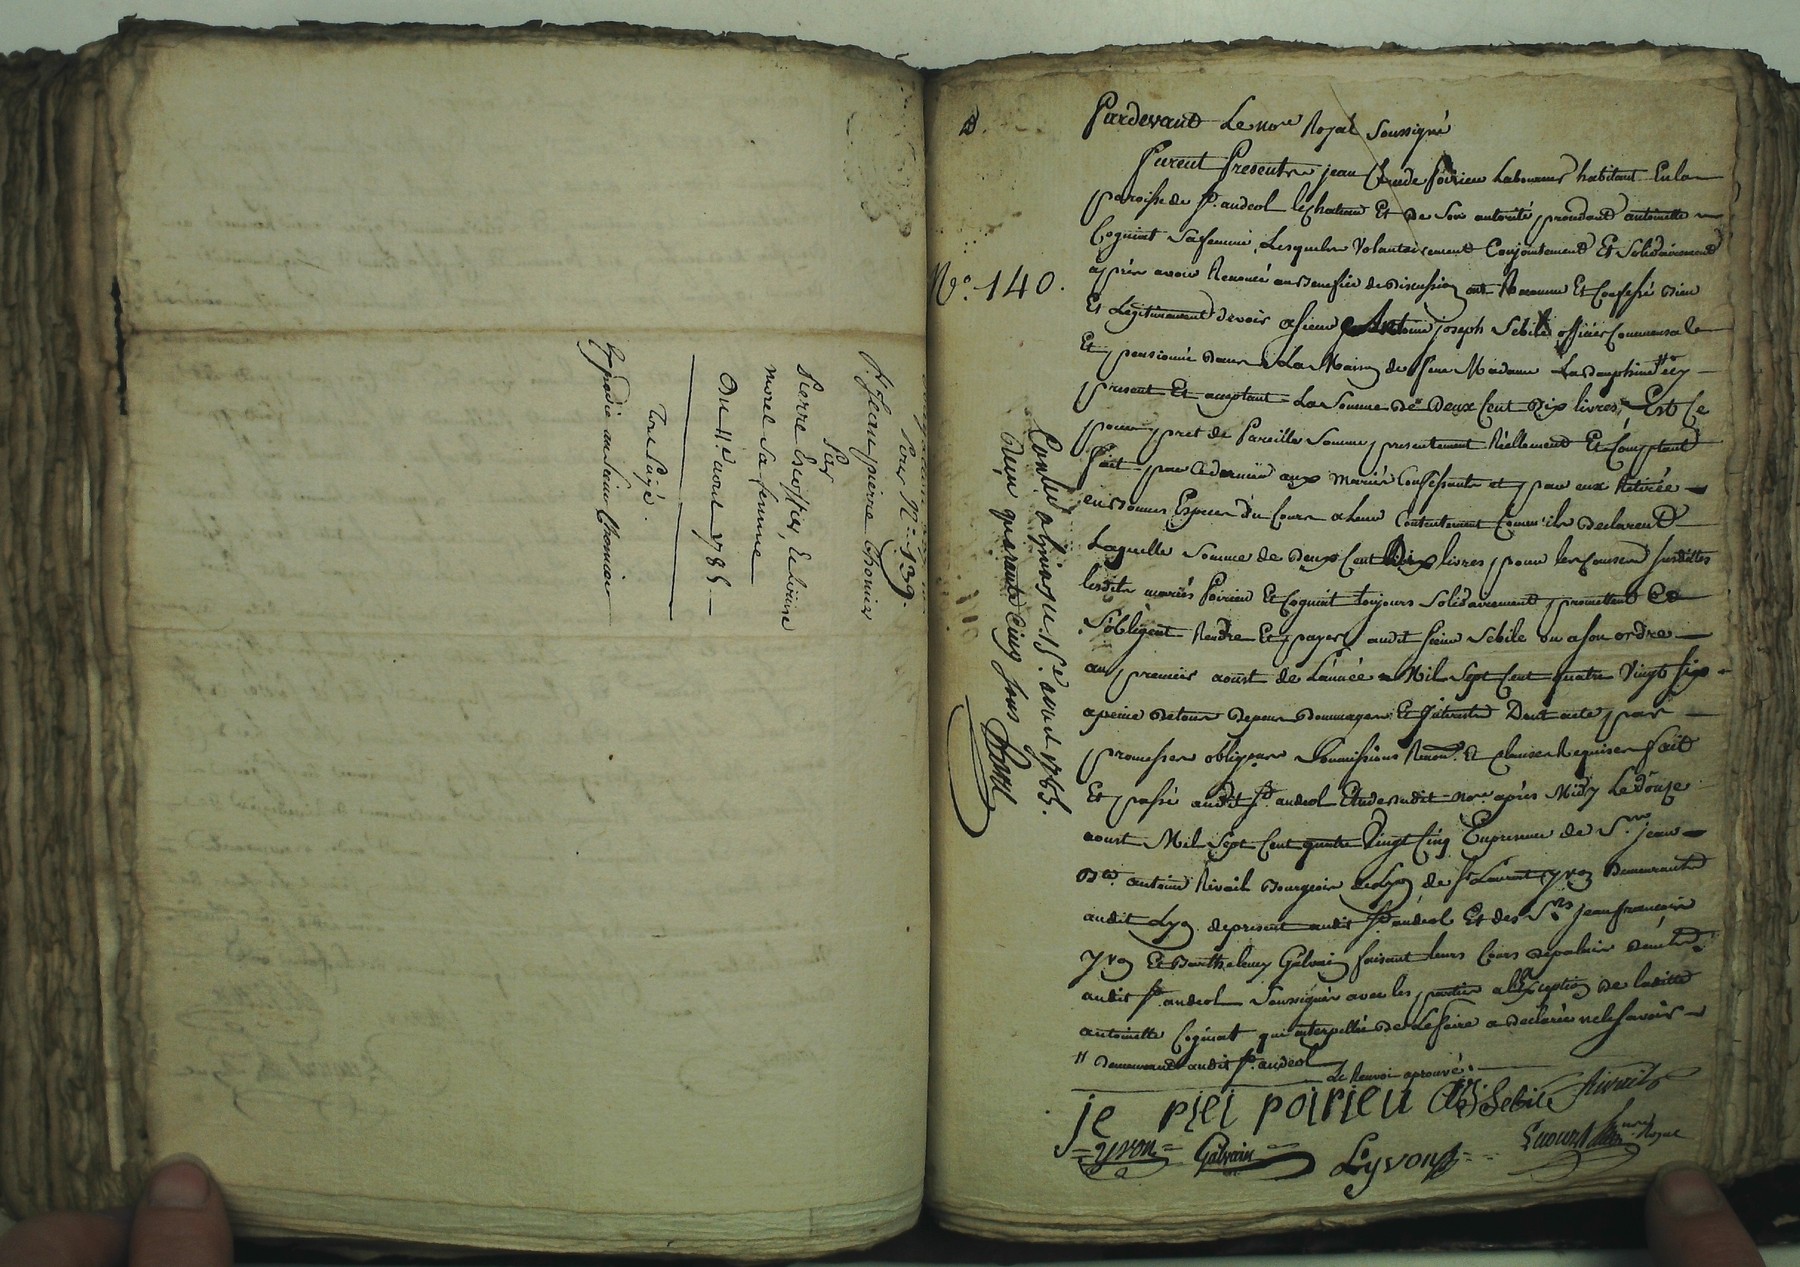 Sous N.º 139.
Sr Jean pierre Thonier
Par
Pierre Escoffier, et
morel Sa femme
Du 11e aout 1785
Expedié au Sieur Thonier
N.º 140.
Controllé a le 15e aout 1785.
Reçu quarante Cinq sous
Pardevant Le nore Royal Soussigné
Furent Presents jean Claude Poirieu Laboureur habitant En la
paroisse de St. andeol le chateau Et de Son autorité procedant antoinette
Cognint Sa femme, Lesquels Volontairement Conjointement Et Solidairement
après avoir Renoncé au Benefice de Discussion ont Reconnu Et Confessé Bien
Et Legitimement devoir a sieur Antoine joseph Sebile officier Commensale
Et pensionné dans La Maison de feue Madame La Dauphine // icy
present Et acceptant La Somme De Deux Cent Dix livres, Et Ce
pour pret de Pareille Somme presentement Réellement Et Comptant
fait par Ce dernier aux mariés Confessants et par eux Retirée
en Bonnes Especes du Cours a Leur Contentement Comm'ils Declarent
Laquelle Somme de Deux Cent Dix livres pour les Causes Susdittes
lesdits mariés Poirieu Et Cognint toujours Solidairement promettent Et
S'obligent Rendre Et payer audit sieur Sebile ou a son ordre
au premier aoust de L'année Mil Sept Cent quatre Vingt Six
a peine de tous Depens Dommages Et Interests Dont acte par
promesses obligaon Soumissions Renon. Et Clauses Requises fait
Et passé audit St. andeol Etude dudit nore après Midy Le Douze
aoust Mil Sept Cent quatre Vingt Cinq En presence de Sr. jean
Bte. antoine Rivail Bourgeois de Lyon de St Laurent yvon Demeurant
audit Lyon de present audit St. andeol Et des Srs jean francois
yvon Et Barthelemy Galvain faisant leurs Cours de palais
audit St. andeol Soussignés avec les parties a l'Exception de laditte
antoinette Cognint qui interpellée de Le faire a declaré ne le Savoir
// Demeurant audit St. andeol
Le Renvoi aprouvé.
je piei poirieu Sebile Rivail
yvon Galvain L. yvon nore Royal